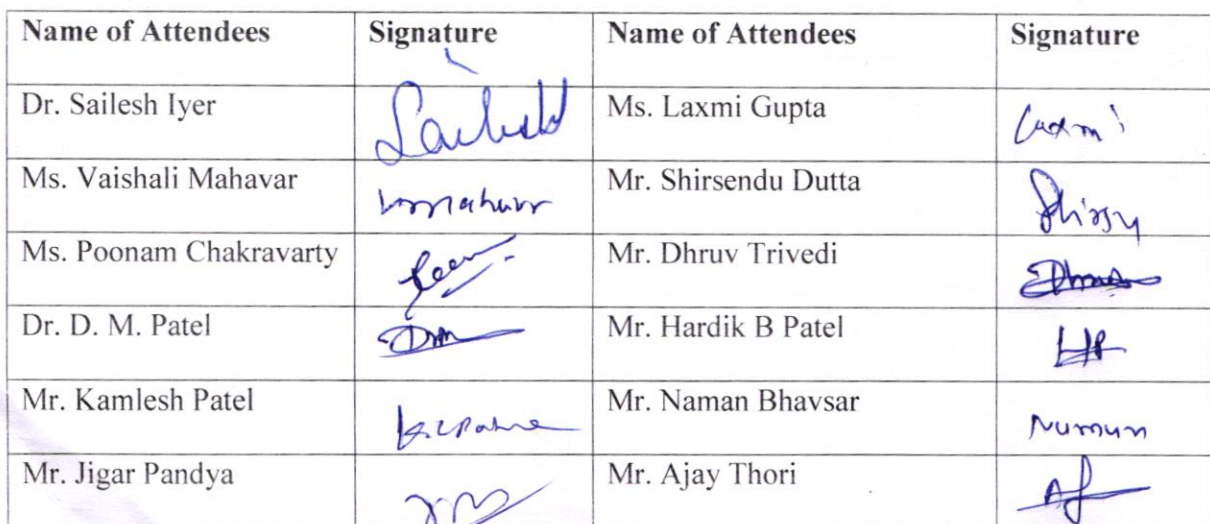 Name of Attendees Signature Name of Attendees Signature
Dr. Sailesh Iyer Ms. Laxmi Gupta Laxmi
Ms. Vaishali Mahavar Mr. Shirsendu Dutta
Ms. Poonam Chakravarty Mr. Dhruv Trivedi
Dr. D. M. Patel Mr. Hardik B Patel HP
Mr. Kamlesh Patel Mr. Naman Bhavsar
Mr. Jigar Pandya Mr. Ajay Thori